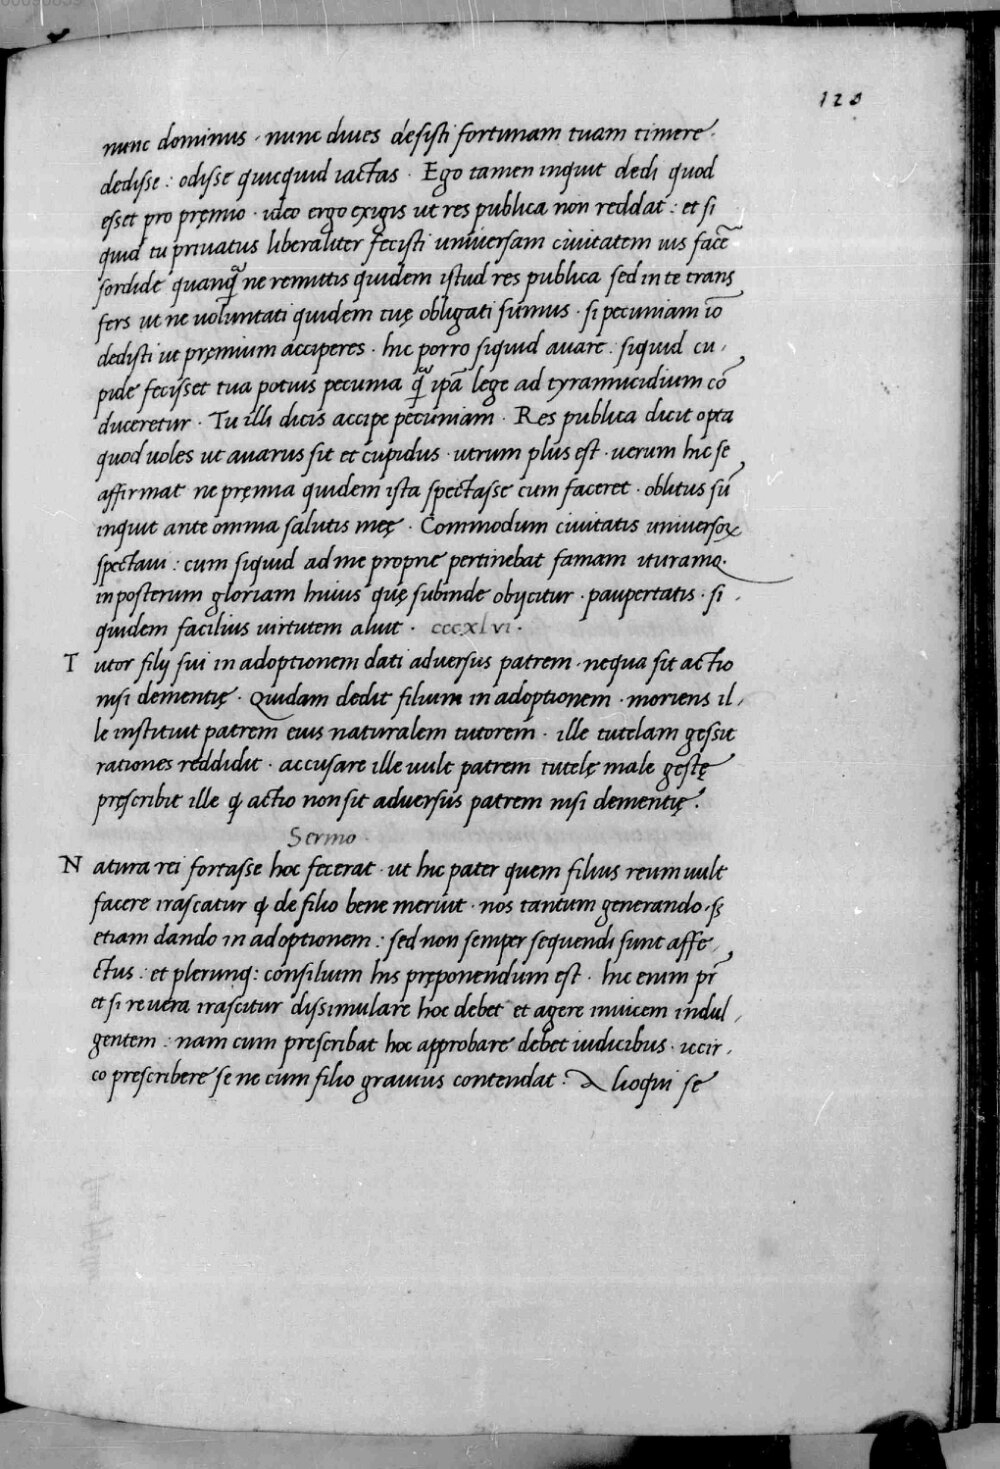 120
nunc dominus · nunc diues desisti fortunam tuam timere ·
dedisse : odisse quicquid iactas · Ego tamen inquit dedi quod
esset pro pręmio · ideo ergo exigis ut res publica non reddat : et si
quid tu priuatus liberaliter fecisti uniuersam ciuitatem uis facē
sordide quanq̄ ne remittis quidem istud res publica sed in te trans
fers ut ne uoluntati quidem tuę obligati sumus · si pecuniam iō
dedisti ut pręmium acciperes · hic porro siquid auare · siquid cu,
pide fecisset tua potius pecunia q̄ ipā lege ad tyrannicidium cō
duceretur · Tu illi dicis accipe pecuniam · Res publica dicit opta
quod uoles ut auarus sit et cupidus · utrum plus est · uerum hic se
affirmat ne pręmia quidem ista spectasse cum faceret · oblitus sū
inquit ante omnia salutis meę · Commodum ciuitatis uniuersoꝝ
spectaui : cum siquid ad me proprie pertinebat famam ituramq.
in posterum gloriam huius quę subinde obijcitur · paupertatis · si ,
quidem facilius uirtutem aluit · cccxlvi ·
T utor filij sui in adoptionem dati aduersus patrem · nequa sit actio
nisi dementię · Quidam dedit filium in adoptionem · moriens il,
le instituit patrem eius naturalem tutorem · ille tutelam gessit
rationes reddidit · accusare ille uult patrem tutelę male gestę
pręscribit ille ꝙ actio non sit aduersus patrem nisi dementię ·
Sermo ·
N atura rei fortasse hoc fecerat · ut hic pater quem filius reum uult
facere irascatur ꝙ de filio bene meriut · nos tantum generando · ꜱꝫ
etiam dando in adoptionem : sed non semper sequendi sunt affe,
ctus : et plerunq: consilium his pręponendum est · hic enim pr̄
et si reuera irascitur dissimulare hoc debet et agere inuicem indul,
gentem : nam cum prescribat hoc approbare debet iudicibus · iccir,
co prescribere se ne cum filio grauius contendat : Alioqui se